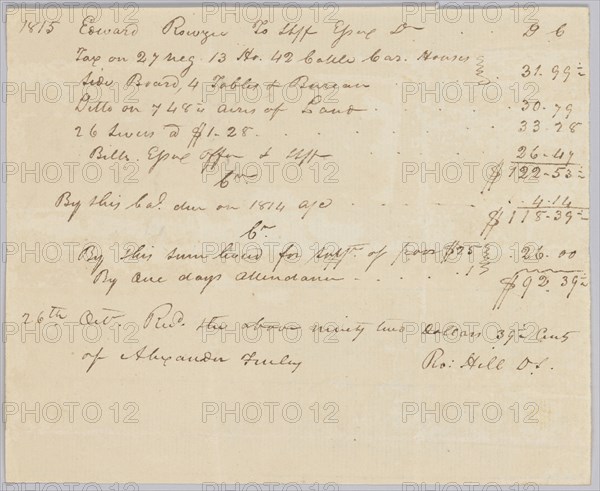 1815 Edward Rouzee To Shff Essex Dr D C
Tax on 27 neg. 13 Ho. 42 Cattle Car. Houses
Side Board, 4 Tables & Bureau 31.99½
Ditto on 748½ acres of Land 30.79
26 Levies a $1.28. 33.28
Bills. Essex & Shff 26.47
$122.53½
Cr
By this Bal. due on 1814 a/c 4.14
$118.39½
Cr.
By this sum levied for supt. of poor $25
By one days attendance 1 26.00
$92.39½
26th Octr. Recd. the above ninety two dollars 39½ Cents
of Alexander Finley Ro: Hill DS.
PHOTO12